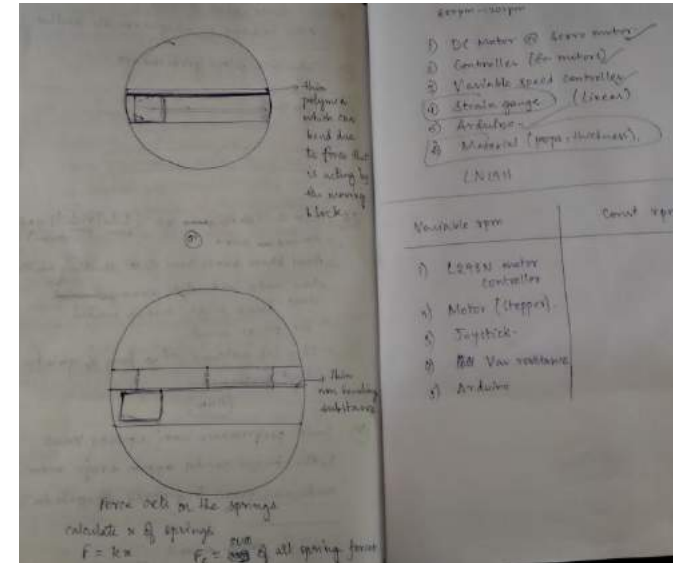 thin
polymer
which can
bend due
to force that
is acting by
the moving
block.
thin
non bending
substance
Force acts on the springs
calculate x of springs
F = kx
of all spring forces
1) DC Motor @ Servo motor
2) Controller (for motors)
3) Variable speed controller
4) Strain gauge (Linear)
5) Arduino
6) Material (prop. thickness).
Variable rpm
Const rpm
1) L298N motor
controller
2) Motor (stepper).
3) Joystick.
4) Var resistance
5) Arduino